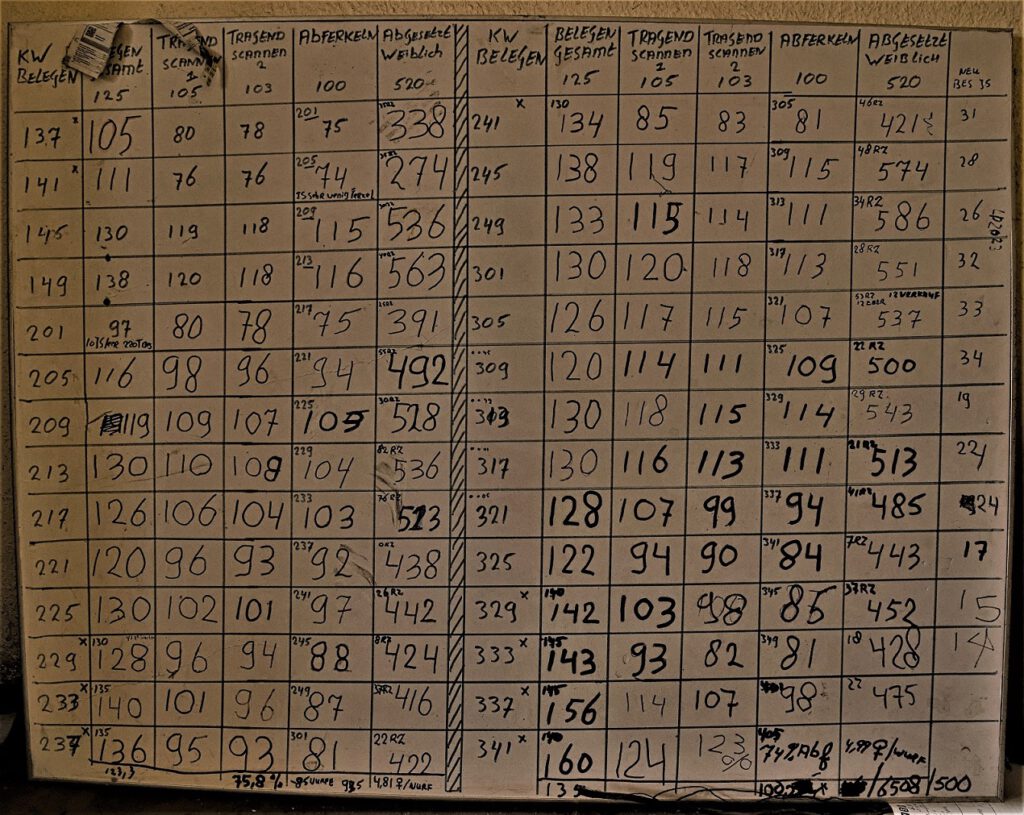 KW BELEGEN | BELEGEN GESAMT 125 | TRAGEND SCANNEN 1 105 | TRAGEND SCANNEN 2 103 | ABFERKELN 100 | ABGESETZT WEIBLICH 520 | KW BELEGEN | BELEGEN GESAMT 125 | TRAGEND SCANNEN 1 105 | TRAGEND SCANNEN 2 103 | ABFERKELN 100 | ABGESETZTE WEIBLICH 520 | NEU BES 35
137 x | 105 | 80 | 78 | 201 75 | 338 | 241 x | 130 134 | 85 | 83 | 305 81 | 46RZ 421 | 31
141 x | 111 | 76 | 76 | 205 74 | 274 | 245 | 138 | 119 | 117 | 309 115 | 48RZ 574 | 28
145 | 130 | 119 | 118 | 209 115 | 536 | 249 | 133 | 115 | 114 | 313 111 | 34RZ 586 | 26
149 | 138 | 120 | 118 | 213 116 | 563 | 301 | 130 | 120 | 118 | 317 113 | 28RZ 551 | 32
201 | 97 | 80 | 78 | 217 75 | 391 | 305 | 126 | 117 | 115 | 321 107 | 12 VERKAUF 537 | 33
205 | 116 | 98 | 96 | 221 94 | 492 | 309 | 120 | 114 | 111 | 325 109 | 22 RZ 500 | 34
209 | 119 | 109 | 107 | 225 105 | 30RZ 528 | 313 | 130 | 118 | 115 | 329 114 | 29 RZ 543 | 19
213 | 130 | 110 | 108 | 229 104 | 82RZ 536 | 317 | 130 | 116 | 113 | 333 111 | 21RZ 513 | 22
217 | 126 | 106 | 104 | 233 103 | 76RZ 523 | 321 | 128 | 107 | 99 | 337 94 | 41RZ 485 | 24
221 | 120 | 96 | 93 | 237 92 | 0RZ 438 | 325 | 122 | 94 | 90 | 341 84 | 7RZ 443 | 17
225 | 130 | 102 | 101 | 241 97 | 26RZ 442 | 329 x | 140 142 | 103 | 98 | 345 86 | 37RZ 452 | 15
229 x | 130 128 | 96 | 94 | 245 88 | 8RZ 424 | 333 x | 145 143 | 93 | 82 | 349 81 | 18 428 | 14
233 x | 135 140 | 101 | 96 | 249 87 | 416 | 337 x | 145 156 | 114 | 107 | 98 | 22 475
237 x | 135 136 | 95 | 93 | 301 81 | 22RZ 422 | 341 x | 140 160 | 124 | 123 % | 405 74% Abf | 4,99 ♀/WURF
123,3 | 75,8 % | 4,81 ♀/WURF | 135 | /6508/500